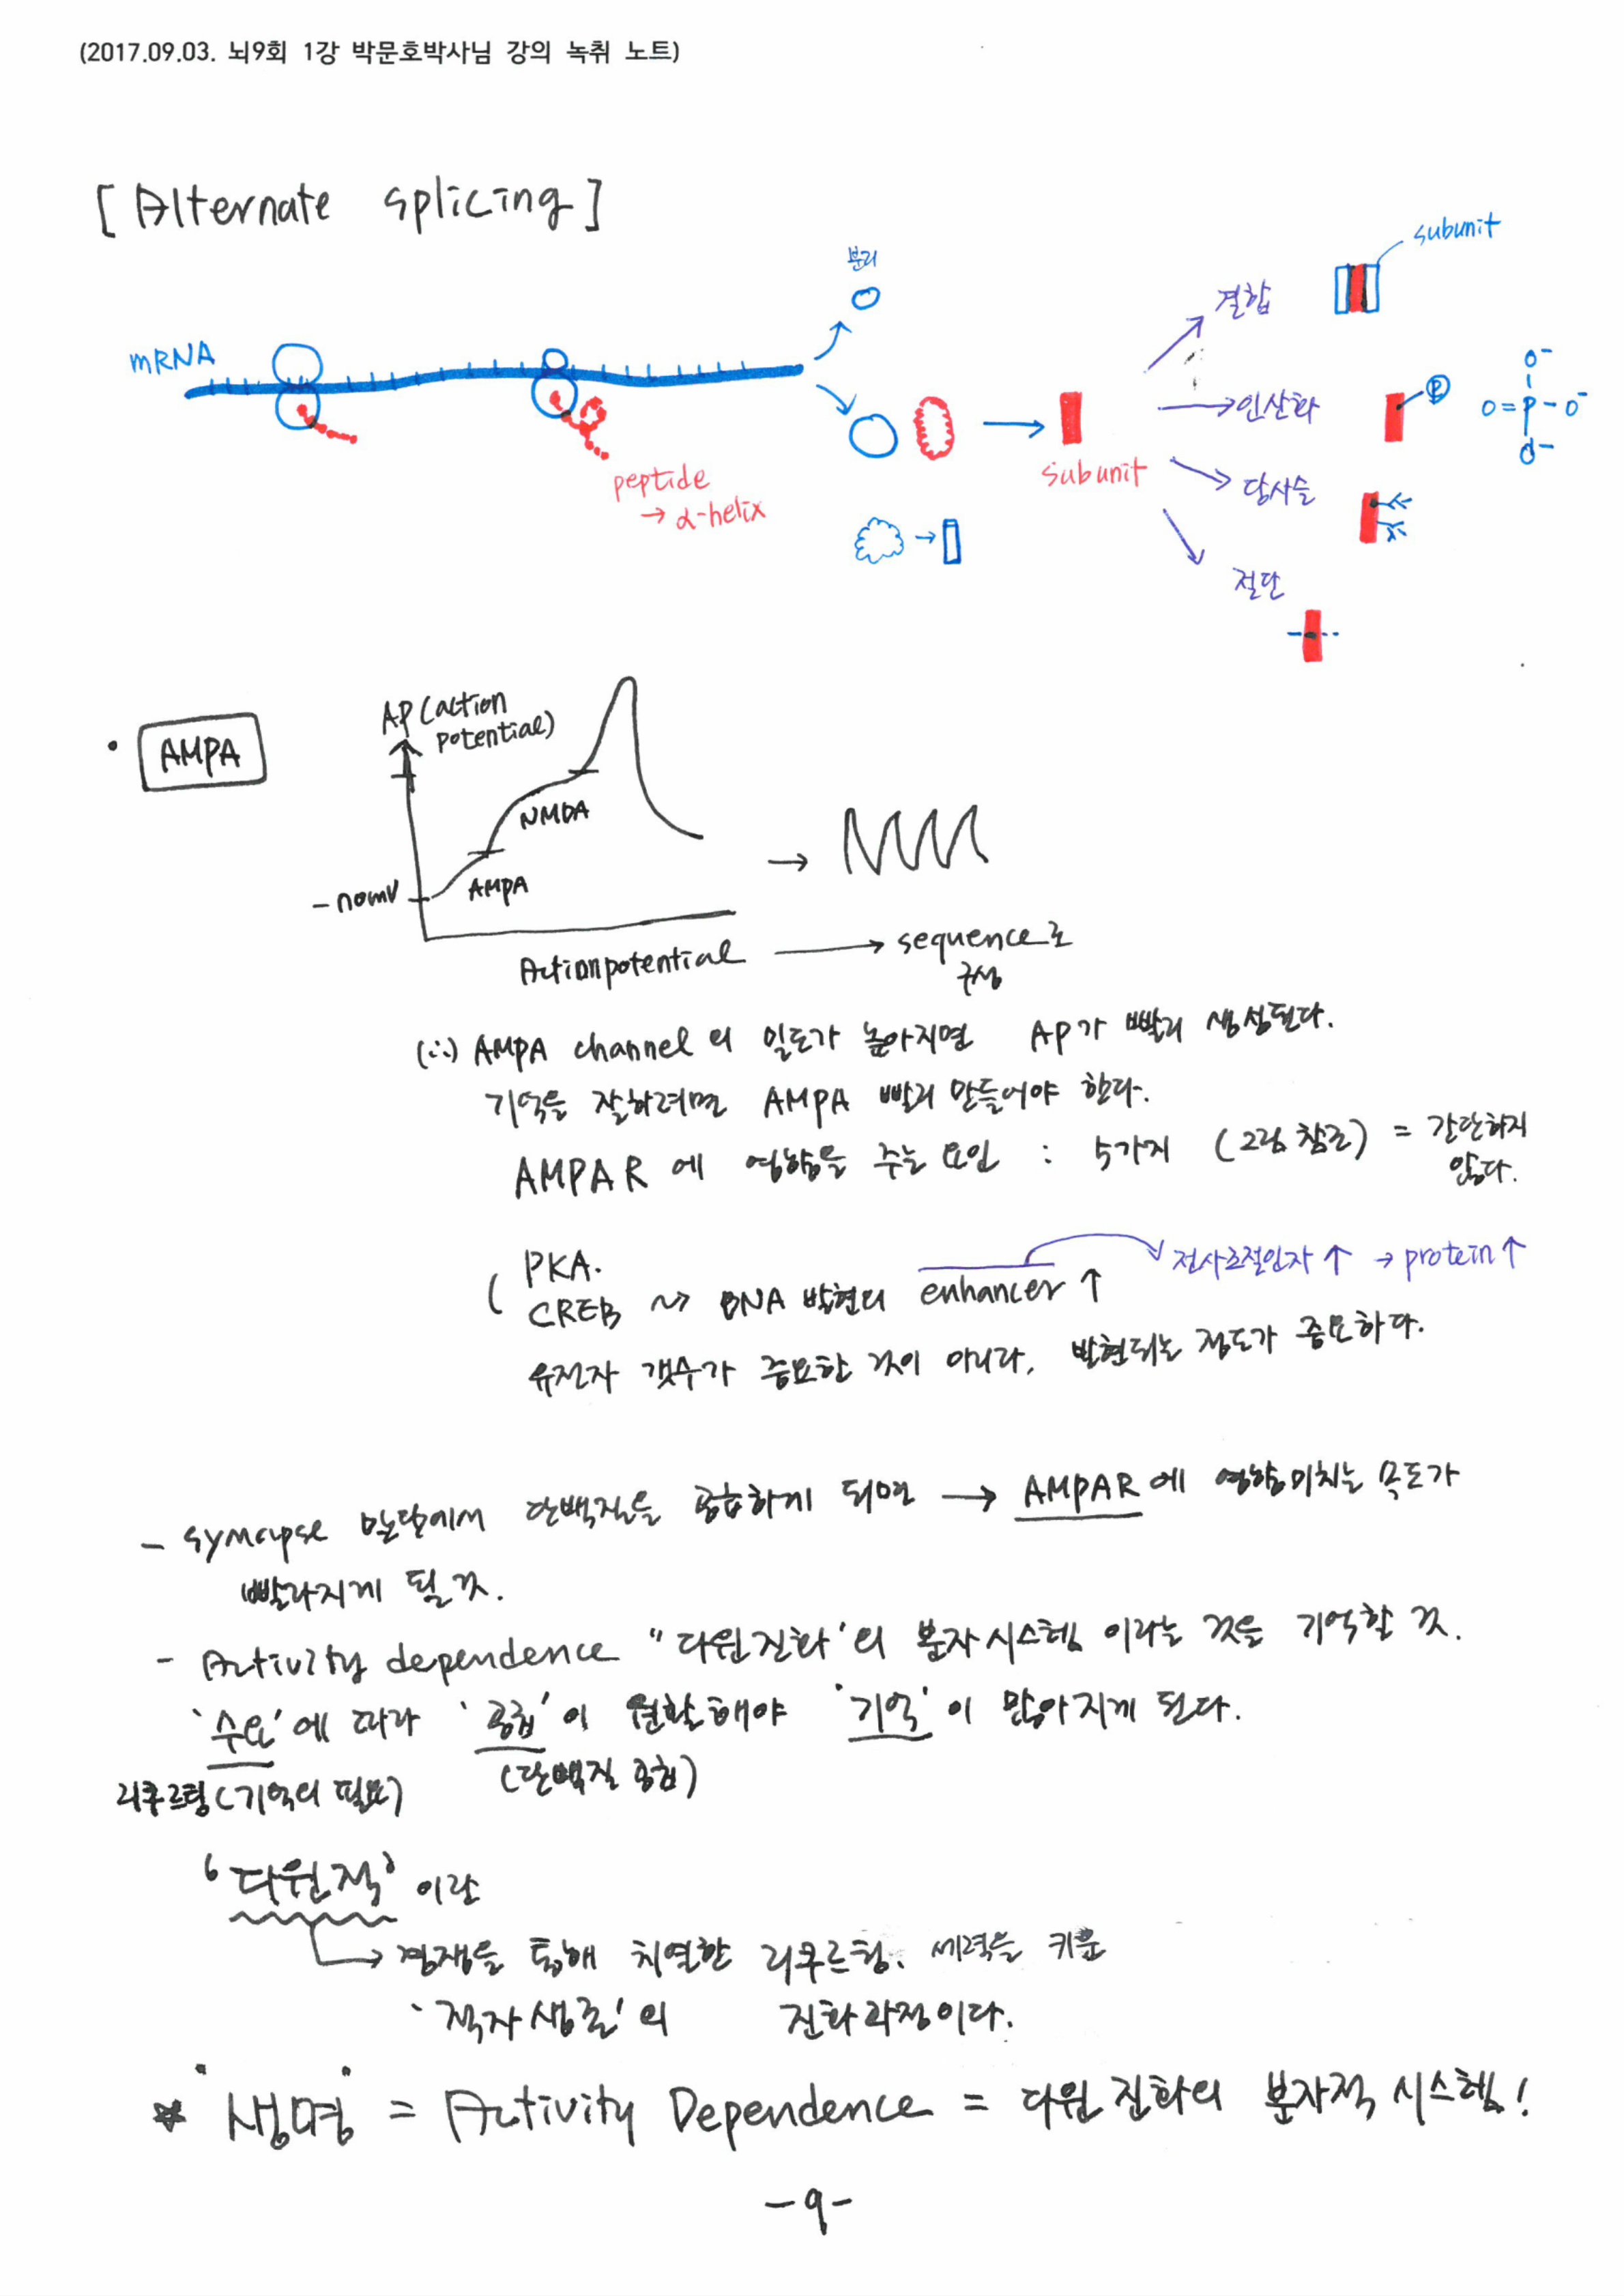 (2017.09.03. 뇌9회 1강 박문호박사님 강의 녹취 노트)
[Alternate splicing]
mRNA
peptide
→ α-helix
분리
subunit
결합
subunit
인산화
P
O⁻
O=P-O⁻
O⁻
당사슬
절단
• AMPA
AP (action
potential)
NMDA
AMPA
-70mV
→
Action potential → sequence로
구성
(∴) AMPA channel의 밀도가 높아지면 AP가 빨리 생성된다.
기억을 잘하려면 AMPA 빨리 만들어야 한다.
AMPAR에 영향을 주는 요인 : 5가지 (그림 참조) = 간단하지
않다.
( PKA.
CREB ~> DNA 발현의 enhancer ↑ 전사조절인자 ↑ → protein ↑
유전자 갯수가 중요한 것이 아니라, 발현되는 정도가 중요하다.
- synapse 말단에서 단백질을 공급하게 되면 → AMPAR에 영향미치는 속도가
빨라지게 될 것.
- Activity dependence "다윈진화'의 분자시스템이라는 것을 기억할 것.
'수요'에 따라 '공급'이 원활해야 '기억'이 많아지게 된다.
리쿠르팅(기억의 필요) (단백질 공급)
'다윈적' 이란
→ 경쟁을 통해 치열한 리쿠르팅. 세력을 키운
'적자생존'의 진화과정이다.
* '생명' = Activity Dependence = 다윈진화의 분자적 시스템!
-9-